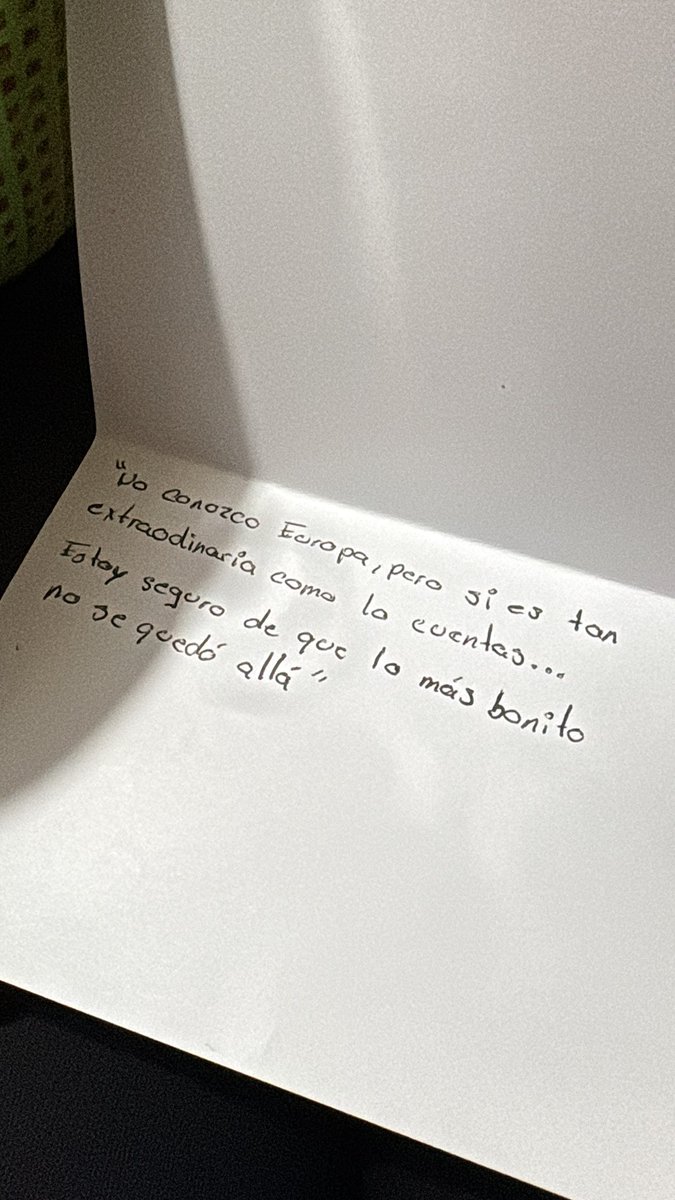 "No conozco Europa, pero si es tan
extraodinaria como la cuentas...
Estoy seguro de que lo más bonito
no se quedó allá"